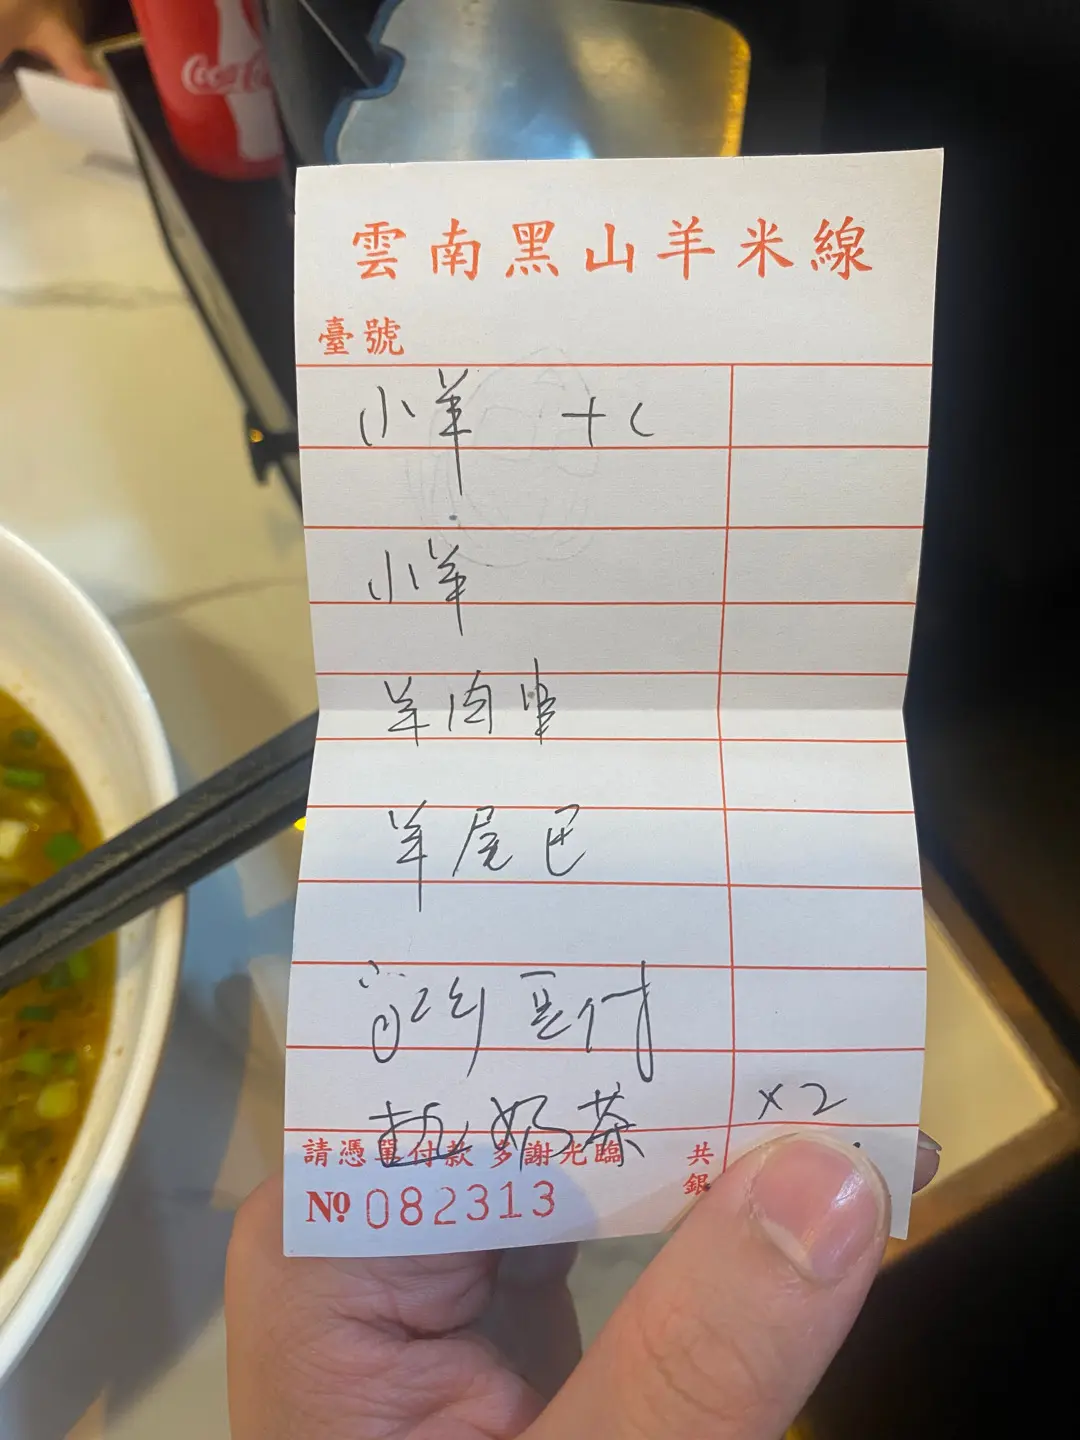 Coca-Cola
雲南黑山羊米線
臺號
小羊 +
小羊
羊肉串
羊尾巴
豆付
热奶茶 x2
請憑單付款 多謝光臨
共銀
№ 082313